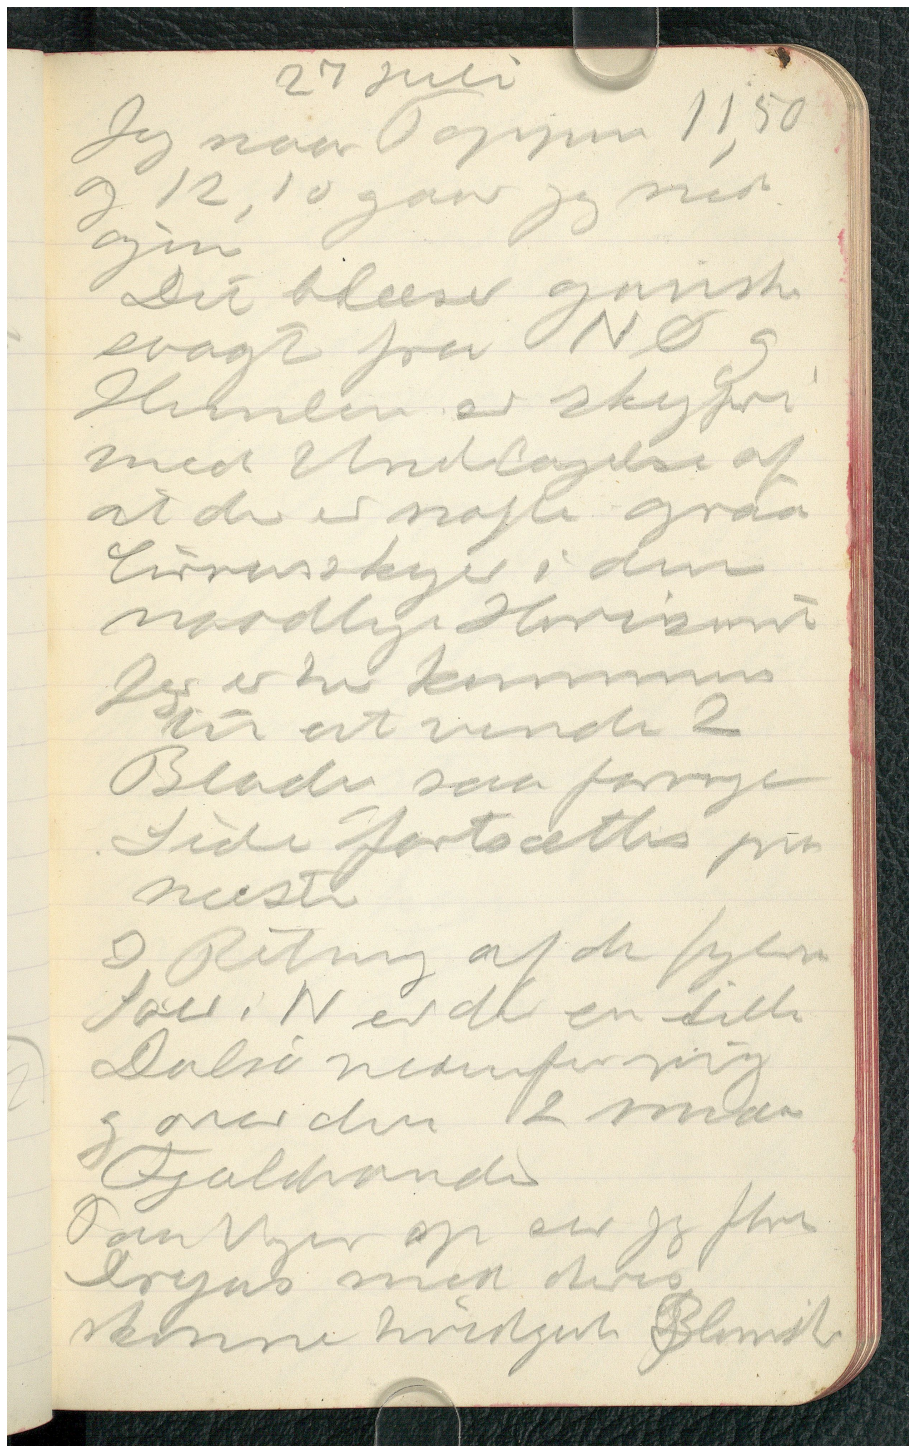 27 Juli
Jeg naar Toppen 11,50
og 12,10 gaar jeg ned
igen
Det blæser ganske
svagt fra NØ og
Himlen er skyfri
med Undtagelse af
at der er nogle graa
Cirrusskyer i den
nordlige Horizont
Jeg er her kommen
til at vende 2
Blade saa forrige
Side fortsættes paa
næste
I Retning af de
i N er der en lille
Dalsø nedenfor mig
og over den 2 smaa
Fjeldvande
Paa op ser jeg flere
Dryas med deres
skønne hvidgule Blomster